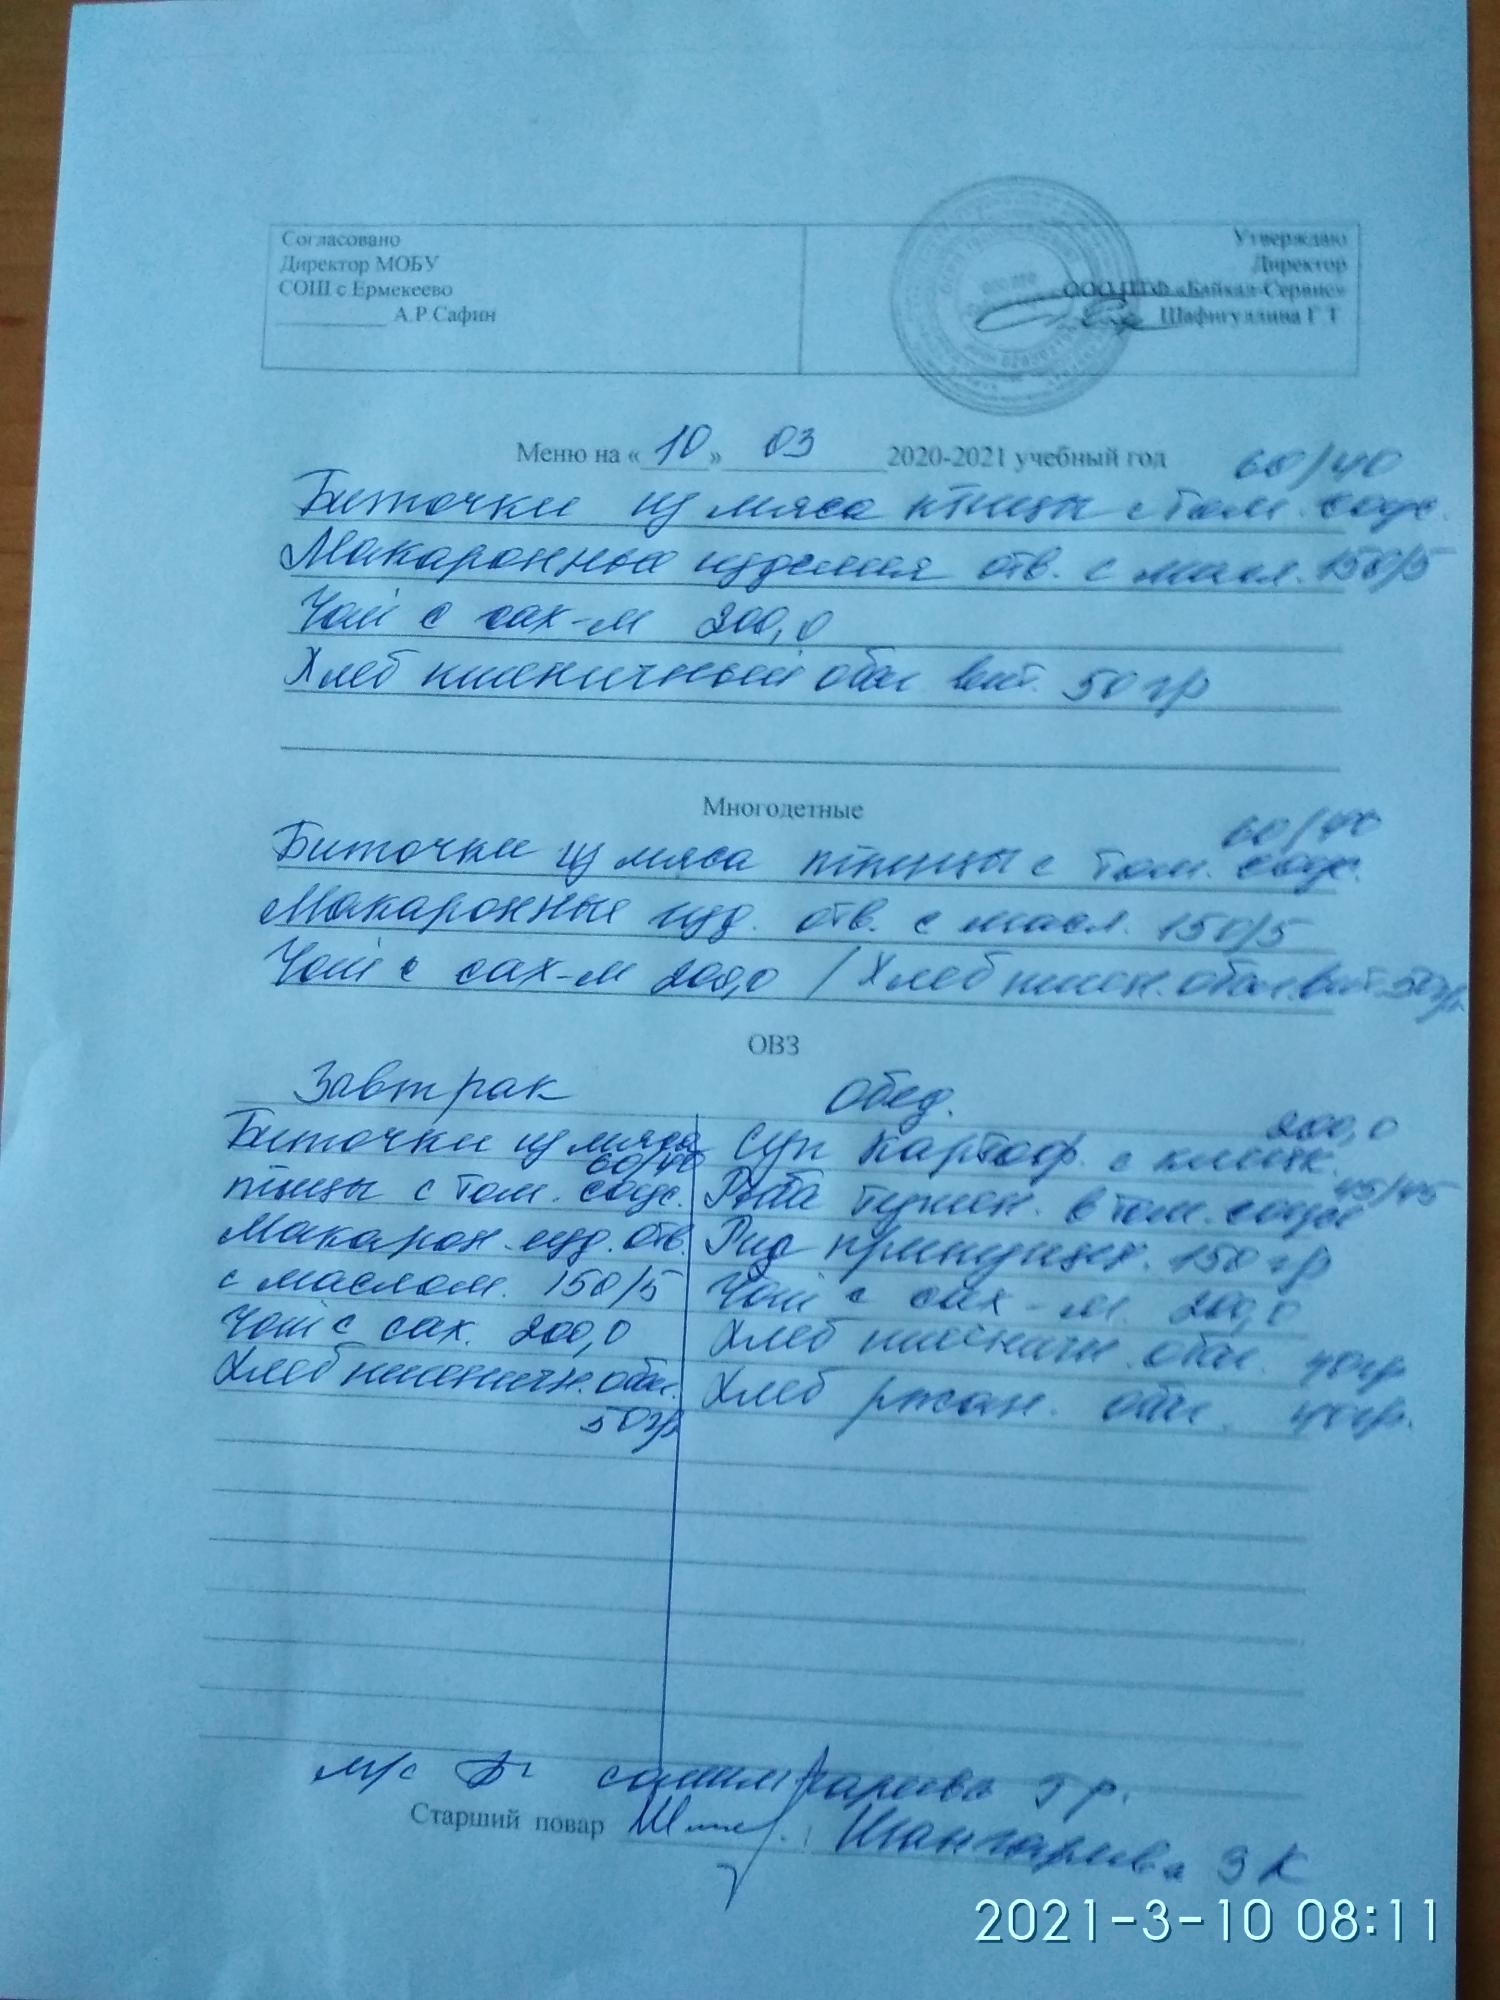 Согласовано
Директор МОБУ
СОШ с Ермекеево
А.Р.Сафин
Утверждаю
Директор
ООО ПТФ «Байкал-Сервис»
Шафигуллина Г.Т
Меню на « 10 » 03 2020-2021 учебный год
60/40
Биточки из мяса птицы с том. соус.
Макаронные изделия отв. с масл. 150/5
Чай с сах-м 200,0
Хлеб пшеничный обог вит. 50 гр
Многодетные
60/40
Биточки из мяса птицы с том. соус.
Макаронные изд. отв. с масл. 150/5
Чай с сах-м 200,0 / Хлеб пшен. обог. вит. 50гр.
ОВЗ
Завтрак
Биточки из мяса
60/40
птицы с том. соус.
Макарон. изд. отв.
с маслом. 150/5
Чай с сах. 200,0
Хлеб пшеничн. обог.
50гр
Обед.
200,0
Суп картоф. с клецк.
45/45
Рыба тушен. в том. соусе
Рис припущен. 150 гр
Чай с сах-м. 200,0
Хлеб пшеничн. обог. 40гр
Хлеб ржан. обог. 40гр.
м/с Салимгареева Г Р.
Старший повар Шангареева З К
2021-3-10 08:11